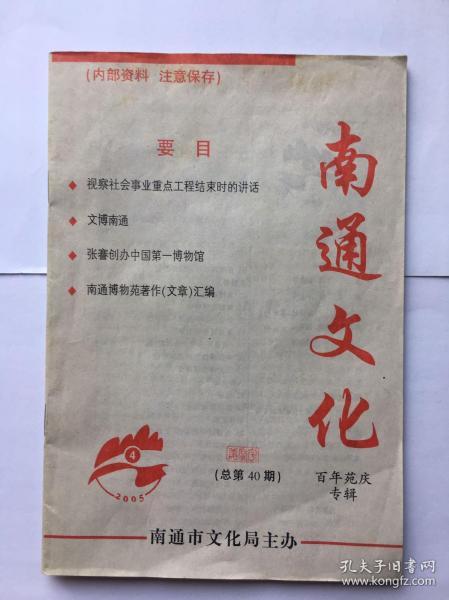 (内部资料 注意保存)
南通文化
要目
◆ 视察社会事业重点工程结束时的讲话
◆ 文博南通
◆ 张謇创办中国第一博物馆
◆ 南通博物苑著作(文章)汇编
4
2005
(总第40期)
百年苑庆
专辑
南通市文化局主办
孔夫子旧书网
www.kongfz.com